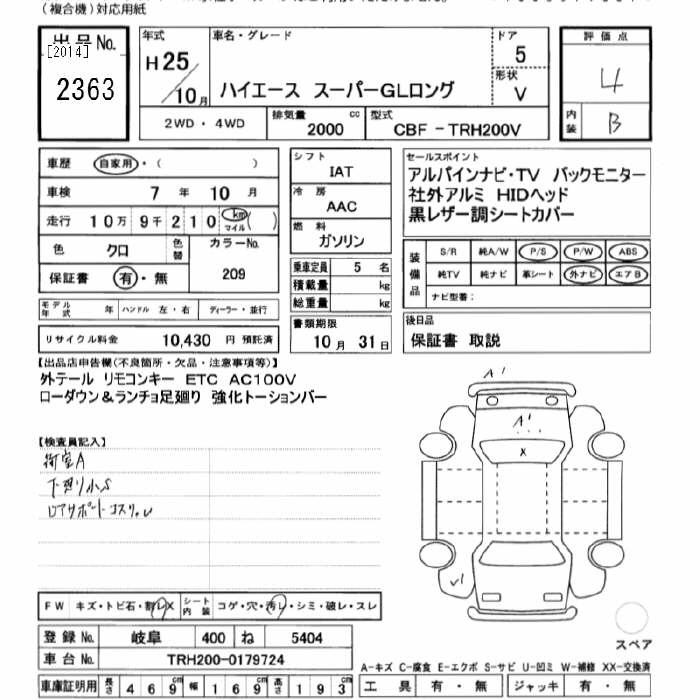 (複合機)対応用紙
出品No.
[2014]
2363
年式 H25/10月
車名・グレード
ハイエース スーパーGLロング
ドア 5
形状 V
評価点 4
内装 B
2WD・4WD
排気量 2000 cc
型式 CBF-TRH200V
車歴 自家用・( )
車検 7年 10月
走行 10万 9千 210 km マイル ( )
色 クロ 色替
カラーNo. 209
保証書 有・無
シフト IAT
冷房 AAC
燃料 ガソリン
乗車定員 5 名
積載量 kg
総重量 kg
書類期限
10月 31日
セールスポイント
アルパインナビ・TV バックモニター
社外アルミ HIDヘッド
黒レザー調シートカバー
装備品
S/R 純A/W P/S P/W ABS
純TV 純ナビ 革シート 外ナビ エアB
ナビ型番:
モデル年式 年 ハンドル 左・右 ディーラー・並行
リサイクル料金 10,430 円 預託済
後日品
保証書 取説
【出品店申告欄(不良箇所・欠品・注意事項等)】
外テール リモコンキー ETC AC100V
ローダウン&ランチョ足廻り 強化トーションバー
【検査員記入】
荷室A
下廻り小S
A'
A'
X
V1
FW キズ・トビ石・割レX シート内装 コゲ・穴・汚レ・シミ・破レ・スレ
登録No. 岐阜 400 ね 5404
車台No. TRH200-0179724
スペア
A-キズ C-腐食 E-エクボ S-サビ U-凹ミ W-補修 XX-交換済
車庫証明用 長さ 469 幅 169 高さ 193
工具 有・無 ジャッキ 有・無